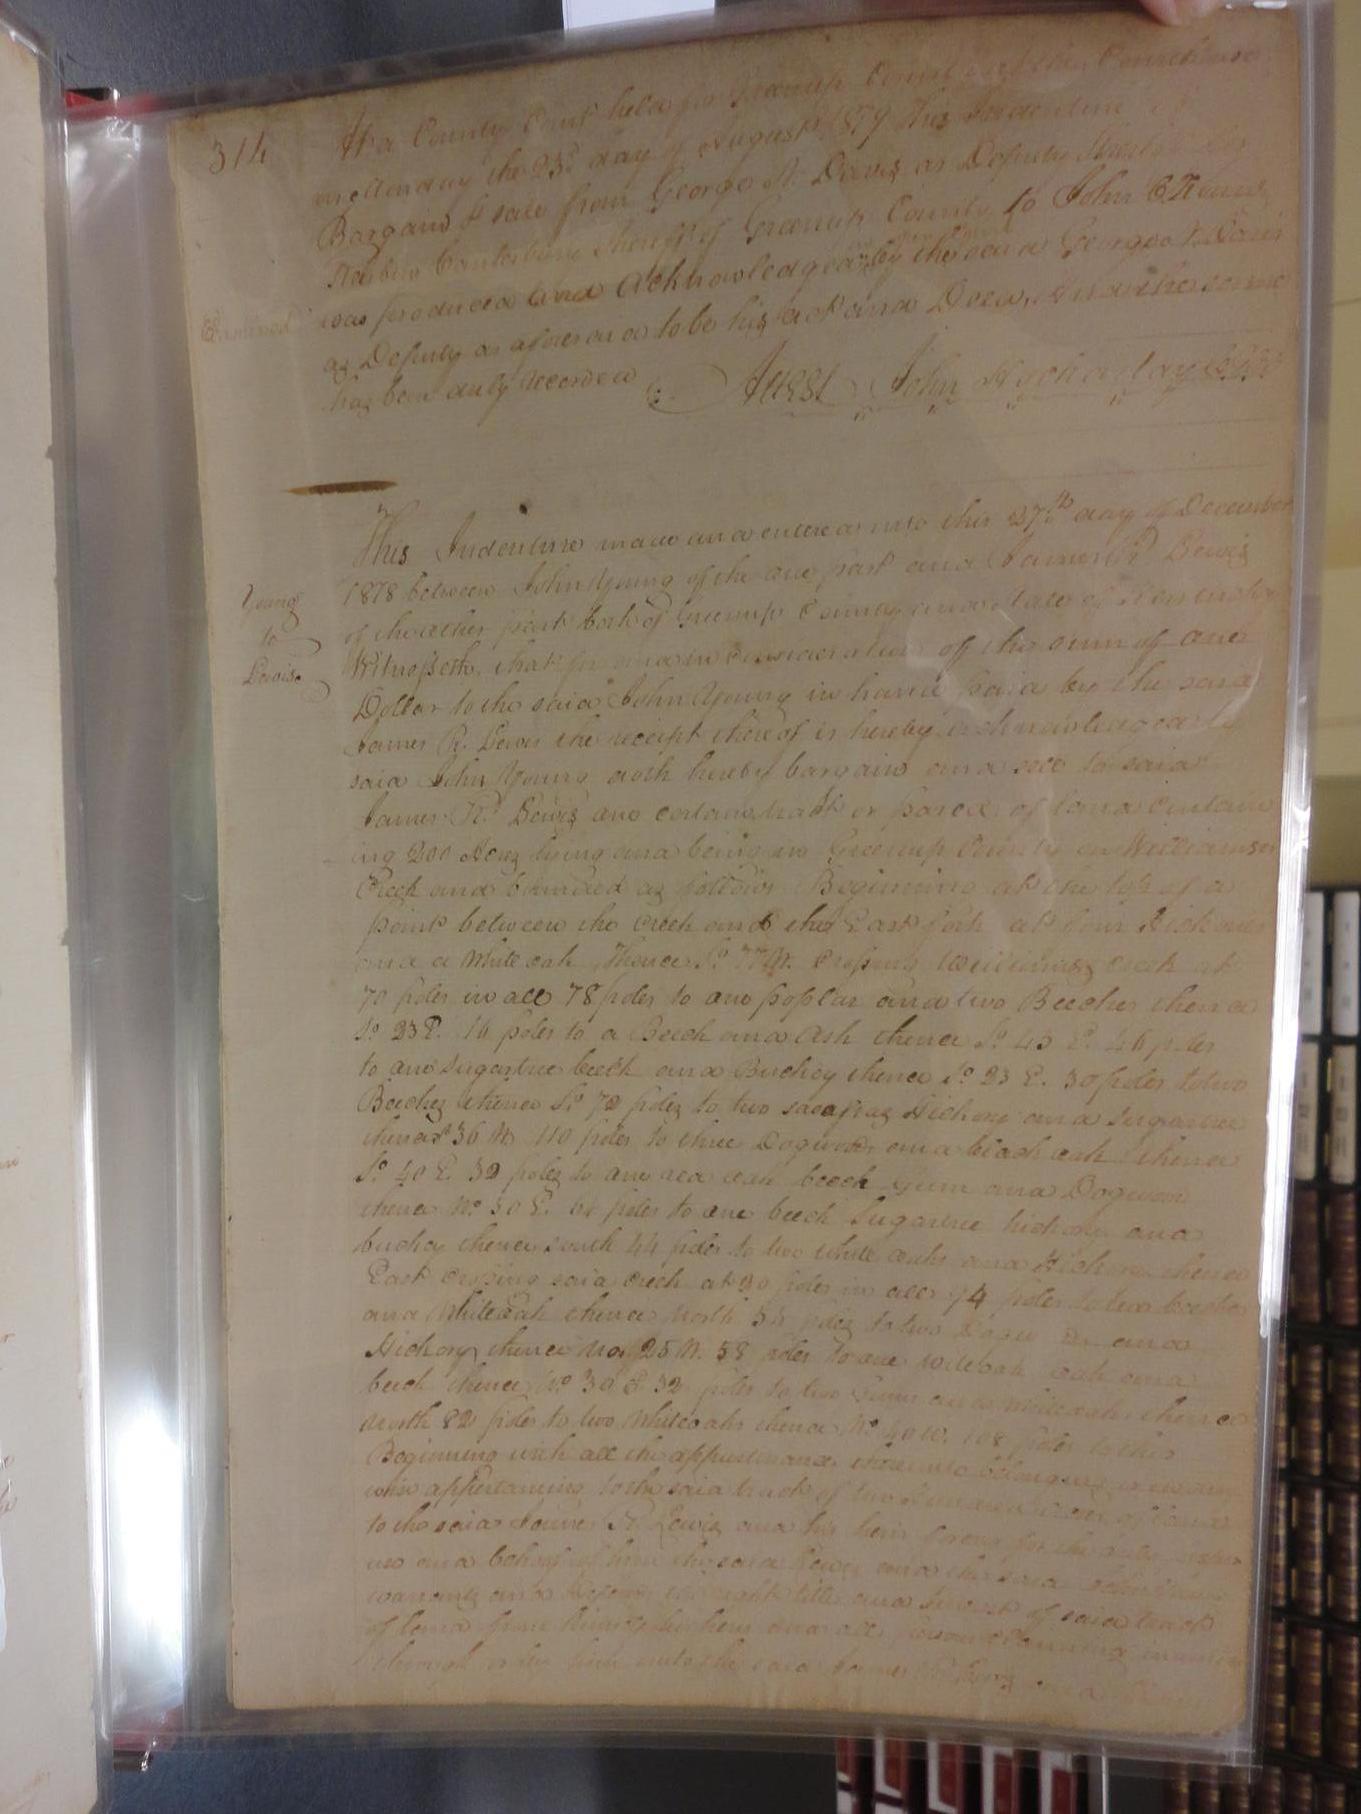 314
At a County Court held for Greenup County at the Courthouse
on Monday the 23d. day of August 1819 this Indenture of
Bargain & sale from George N. Davis as Deputy Sheriff
Reubin Canterbury Sheriff of Greenup County to John
was produced and Acknowledged by the said George N Davis
as Deputy as aforesaid to be his act and Deed, And the same
has been duly recorded
Examined
Attest John
This Indenture made and entered into this 27th day of December
1818 between John Young of the one part and James R. Lewis
of the other part both of Greenup County and state of Kentucky
Young
to
Lewis
Witnesseth, that for and in consideration of the sum of one
Dollar to the said John Young in hand paid by the said
James R. Lewis the receipt thereof is hereby acknowledged
said John Young doth hereby bargain and sell to said
James R. Lewis one certain tract or parcel of land contain
ing 200 Acres lying and being in Greenup County on Williamses
Creek and bounded as follows Beginning at the top of a
point between the creek and the East fork at four Hickories
and a White oak Thence So. 77 W. crossing Williams creek at
70 poles in all 78 poles to one poplar and two Beeches thence
So. 23 E. 16 poles to a Beech and Ash thence So. 43 E. 46 poles
to one sugartree beech and Buckey thence So. 23 E. 30 poles to two
Beeches thence So. 72 poles to two sasafras Hickory and a sugartree
thence 36 W. 110 poles to three Dogwoods and a black oak thence
So. 40 E. 32 poles to one red oak beech gum and Dogwood
thence No. 50 E. 64 poles to one beech Sugartree hickory and a
buckey thence south 44 poles to two white oaks and Hickory thence
East crossing said creek at 90 poles in all 94 poles to two beeches
and White oak thence North 54 poles to two and a
Hickory thence No. 25 W. 58 poles to one oak and
beech thence No. 30 E 32 poles to two Gums and a white oak thence
North 82 poles to two Whiteoaks thence No. 40 W. 108 poles to the
Beginning with all the appurtenances thereunto belonging or in any
wise appertaining to the said track of two hundred acres of land
to the said James R. Lewis and his heirs forever for the only
use and behoof of him the said Lewis and the said John Young
warrants and Defends the right title and Interest of said track
of land from him his heirs and all persons claiming
through or by him unto the said James R. Lewis